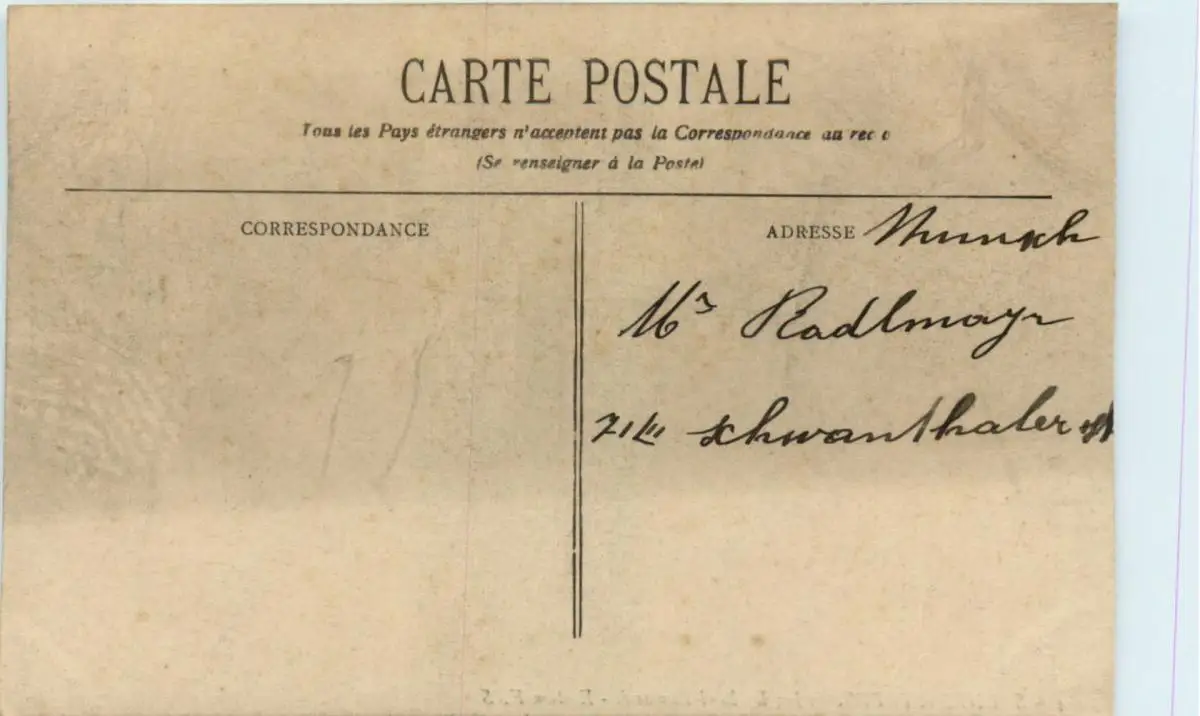 CARTE POSTALE
Tous les Pays étrangers n'acceptent pas la Correspondance au recto
(Se renseigner à la Poste)
CORRESPONDANCE
ADRESSE Munich
Mr Radlmayr
Schwanthaler st